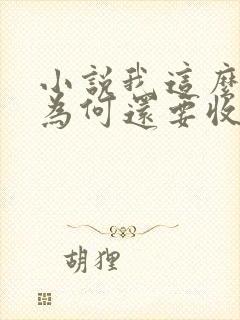 小說我這麼
為何還要收
胡狸